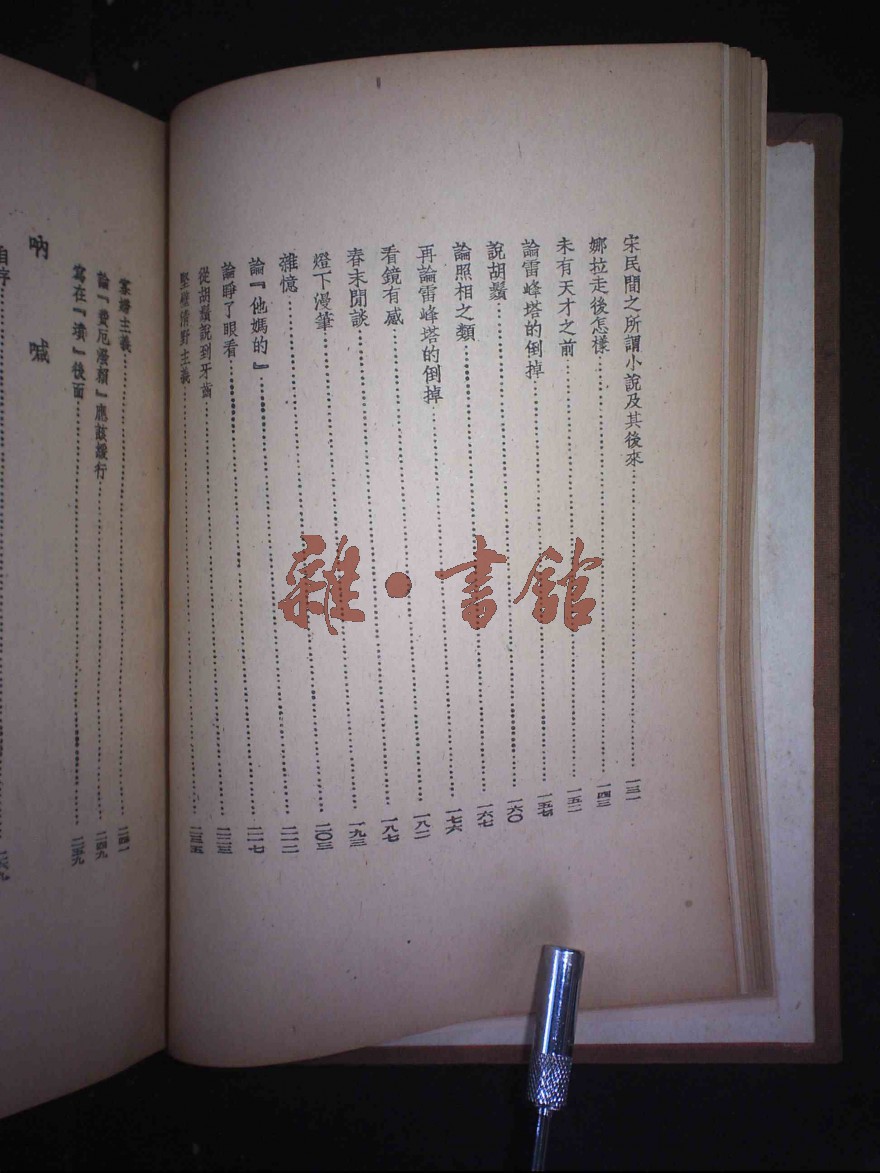 宋民間之所謂小說及其後來……一三一
娜拉走後怎樣……一四三
未有天才之前……一五二
論雷峰塔的倒掉……一五七
說胡鬚……一六〇
論照相之類……一六七
再論雷峰塔的倒掉……一七六
看鏡有感……一八二
春末閒談……一八七
燈下漫筆……一九三
雜憶……二〇三
論『他媽的』……二一二
論睜了眼看……二一七
從鬍鬚說到牙齒……二二三
堅壁清野主義……二三五
寡婦主義……二四一
論『費厄潑賴』應該緩行……二四九
寫在『墳』後面……二五九
吶喊
自序……二六九
雜·書館